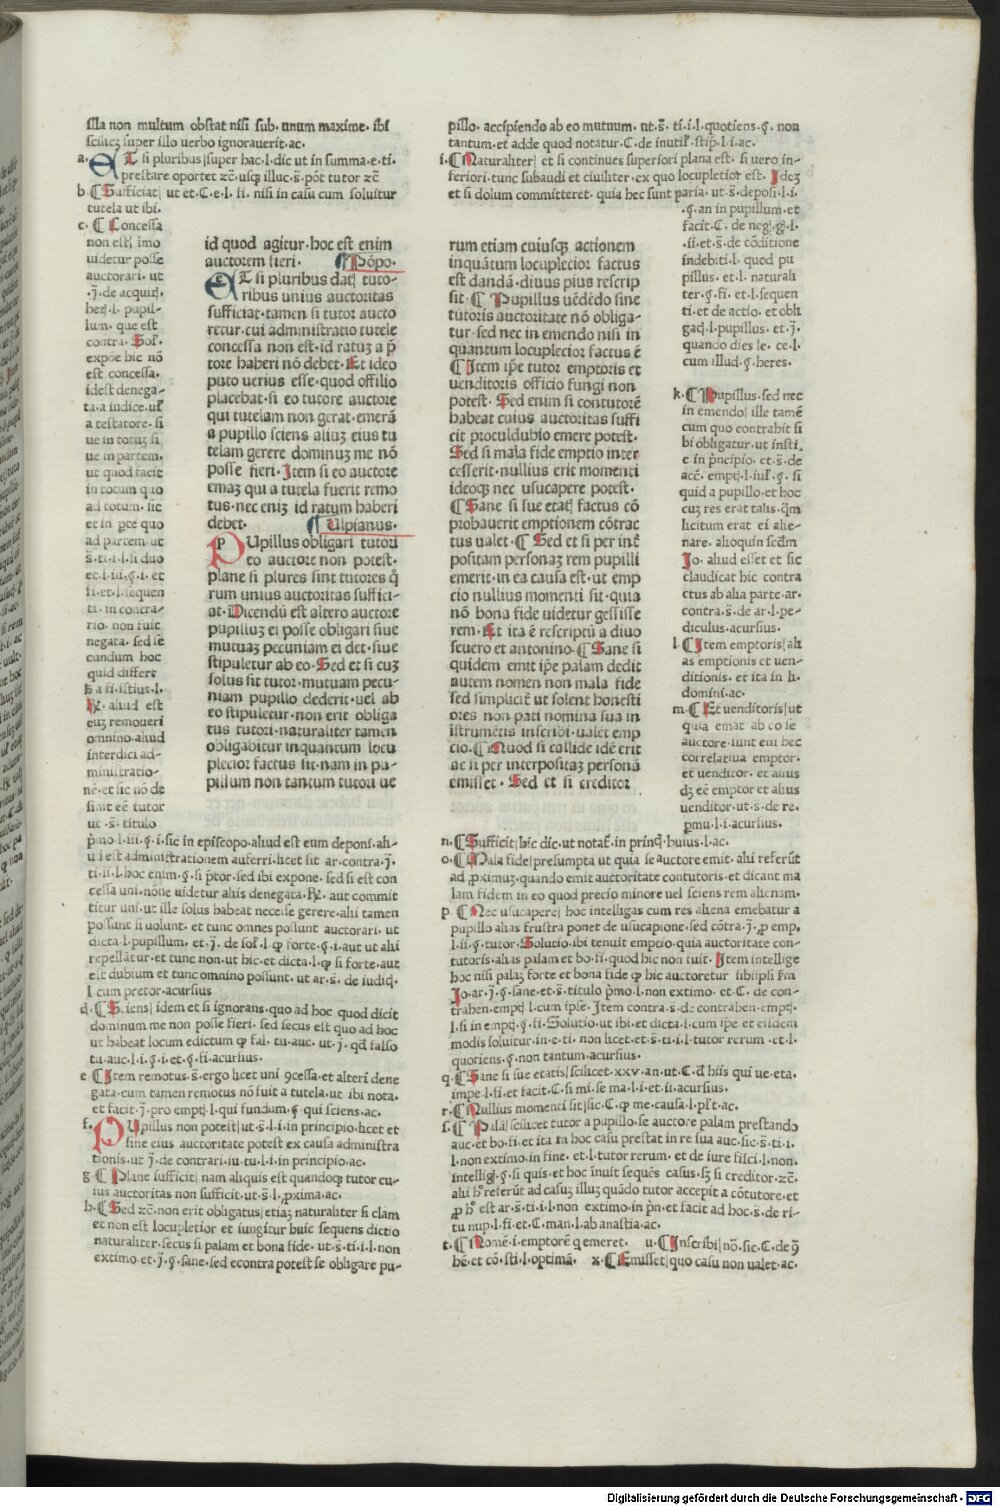 illa non multum obstat nisi sub. unum maxime. ibi
scilicꝫ super illo uerbo ignorauerit. ac.
a. ET si pluribus| super hac. l. dic ut in summa. e. ti.
prestare oportet zc̄. usqꝫ illuc. s̄. pōt tutor zc̄
b. ¶ Sufficiat| ut et. C. e. l. fi. nisi in casu cum soluitur
tutela ut ibi.
c. ¶ Concessa
non est| imo
uidetur posse
auctorari. ut
.j̄. de acquir̄.
her̄. l. pupil-
lum. que est
contra. Sol̄.
expōe hic nō
est concessa.
idest denega-
ta. a iudice. ul̄
a testatore. si
ue in totuꝫ si
ue in partem.
ut quod facit
in totum quo
ad totum. sic
et in pte quo
ad partem. ut
s̄. ti. i. l. si duo
et. l. iii. §. i. et
fi. et. l. sequen
ti. in contra-
rio. non fuit
negata. sed se
cundum hoc
quid differt
hͣ a fi. istius. l.
R̄. aliud est
euꝫ remoueri
omnino. aliud
interdici ad-
ministratio-
nē. et sic nō de
sinit eē tutor
ut .s̄. titulo
p̄mo. l. iii. §. i. sic in episcopo. aliud est eum deponi. ali-
ud est administrationem auferri. licet sit ar. contra. j̄.
ti. ii. l. hoc enim. §. si p̄tor. sed ibi expone. sed si est con
cessa uni. nōne uidetur aliis denegata. R̄. aut commit
titur uni. ut ille solus habeat necesse gerere. alii tamen
possunt si uolunt. et tunc omnes possunt auctorari. ut
dicta. l. pupillum. et. j̄. de sol̄. l. ꝙ forte. §. i. aut ut alii
repellātur. et tunc non. ut hic. et dicta. l. ꝙ si forte. aut
est dubium et tunc omnino possunt. ut ar. s̄. de iudiꝗ.
l. cum pretor. acursius
d. ¶ Sciens| idem et si ignorans. quo ad hoc quod dicit
dominum me non posse fieri. sed secus est quo ad hoc
ut habeat locum edictum ꝙ fal. tu. auc. ut. j̄. qd̄ falso
tu. auc. l. i. §. i. et. §. fi. acursius.
e. ¶ Item remotus. s̄. ergo licet uni ꝯcessa. et alteri dene
gata. cum tamen remotus nō fuit a tutela. ut ibi nota.
et facit. j̄. pro empt̄. l. qui fundum. §. qui sciens. ac.
f. PUpillus non potest| ut. s̄. l. i. in principio. licet et
sine eius auctoritate potest ex causa administra
tionis. ut j̄. de contrari. iu. tu. l. i. in principio. ac.
g. ¶ Plane sufficit| nam aliquis est quandoqꝫ tutor cu-
ius auctoritas non sufficit. ut. s̄. l. ꝓxima. ac.
h. ¶ Sed zc̄. non erit obligatus| etiaꝫ naturaliter si clam
et non est locupletior et iungitur huic sequens dictio
naturaliter. secus si palam et bona fide. ut. s̄. ti. i. l. non
extimo. et. j̄. §. sane. sed econtra potest se obligare pu-
id quod agitur. hoc est enim
auctorem fieri. ¶ Pōpo.
ET si pluribus datꝭ tuto-
ribus unius auctoritas
sufficiat. tamen si tutor aucto
retur. cui administratio tutele
concessa non est. id ratuꝫ a p̄
tore haberi nō debet. Et ideo
puto uerius esse. quod offilio
placebat. si eo tutore auctore
qui tutelam non gerat. emerā
a pupillo sciens aliuꝫ eius tu
telam gerere dominuꝫ me nō
posse fieri. Item si eo auctore
emaꝫ qui a tutela fuerit remo
tus. nec eniꝫ id ratum haberi
debet. ¶ Ulpianus.
PUpillus obligari tutori
eo auctore non potest.
plane si plures sint tutores q̄
rum unius auctoritas suffici-
at. Dicendū est altero auctore
pupilluꝫ ei posse obligari siue
mutuaꝫ pecuniam ei det. siue
stipuletur ab eo. Sed et si cuꝫ
solus sit tutor. mutuam pecu-
niam pupillo dederit. uel ab
eo stipuletur. non erit obliga
tus tutori. naturaliter tamen
obligabitur inquantum locu
pletior factus sit. nam in pu-
pillum non tantum tutori ue
pillo. accipiendo ab eo mutuum. ut. s̄. ti. i. l. quotiens. §. non
tantum. et adde quod notatur. C. de inutil̄. stip̄. l. i. ac.
i. ¶ Naturaliter| et si continues superiori plana est. si uero in-
feriori. tunc subaudi et ciuiliter. ex quo locupletior est. Ideꝫ
et si dolum committeret. quia hec sunt paria. ut. s̄. deposi. l. i.
rum etiam cuiusqꝫ actionem
inquātum locuplecior factus
est dandā. diuus pius rescrip
sit. ¶ Pupillus uēdēdo sine
tutoris auctoritate nō obliga-
tur. sed nec in emendo nisi in
quantum locuplecior factus ē
¶ Item ip̄e tutor emptoris et
uenditoris officio fungi non
potest. Sed enim si contutorē
habeat cuius auctoritas suffi
cit proculdubio emere potest.
Sed si mala fide emptio inter
cesserit. nullius erit momenti
ideoqꝫ nec usucapere potest.
¶ Sane si sue etatꝭ factus cō
probauerit emptionem cōtrac
tus ualet. ¶ Sed et si per int̄
positam personaꝫ rem pupilli
emerit. in ea causa est. ut emp
cio nullius momenti sit. quia
nō bona fide uidetur gessisse
rem. Et ita ē rescriptū a diuo
seuero et antonino. ¶ Sane si
quidem emit ip̄e palam dedit
autem nomen non mala fide
sed simplicit̄ ut solent honesti
ores non pati nomina sua in
istrumētis inscribi. ualet emp
cio. ¶ Quod si callide idē erit
ac si per interpositaꝫ personā
emisset. Sed et si creditor
.§. an in pupillum. et
facit. C. de neḡ. ḡ. l.
.ii. et. s̄. de cōditione
indebiti. l. quod pu
pillus. et. l. naturali
ter. §. fi. et. l. sequen
ti. et de actio. et obli
gac̄. l. pupillus. et. j̄.
quando dies le. ce. l.
cum illud. §. heres.
k. ¶ Pupillus. sed nec
in emendo| ille tamē
cum quo contrahit si
bi obligatur. ut insti.
e in p̄ncipio. et. s̄. de
acc̄. empt̄. l. iul̄. §. si
quid a pupillo. et hoc
cuꝫ res erat talis. qm̄
licitum erat ei alie-
nare. alioquin scdm̄
Io. aliud esset et sic
claudicat hic contra
ctus ab alia parte. ar.
contra. s̄. de ar. l. pe-
diculus. acursius.
l. ¶ Item emptoris| ali
as emptionis et uen-
ditionis. et ita in li.
domini. ac.
m. ¶ Et uenditoris| ut
quia emat ab eo se
auctore. sunt eni hec
correlatiua emptor.
et uenditor. et alius
dꝫ eē emptor et alius
uenditor. ut. s̄. de re.
ꝑmu. l. i. acursius.
n. ¶ Sufficit| hic dic̄. ut notat̄. in princꝭ. huius. l. ac.
o. ¶ Mala fide| presumpta ut quia se auctore emit. alii referūt
ad ꝓximuꝫ. quando emit auctoritate contutoris. et dicant ma
lam fidem in eo quod precio minore uel sciens rem alienam.
p. ¶ Nec usucapere| hoc intelligas cum res aliena emebatur a
pupillo alias frustra ponet de usucapione. sed cōtra. j̄. ꝓ emp.
l. ii. §. tutor. Solutio. ibi tenuit emptio. quia auctoritate con-
tutoris. alias palam et bo. fi. quod hic non fuit. Item intellige
hoc nisi palaꝫ forte et bona fide ꝙ hic auctoretur sibiipsi s̄m
Io. ar. j̄. §. sane. et. s̄. titulo p̄mo. l. non extimo. et. C. de con-
trahen. emptꝭ. l. cum ipse. Item contra. s. de contrahen. emptꝭ.
l. si in emptꝭ. §. fi. Solutio. ut ibi. et dicta. l. cum ip̄e et eisdem
modis soluitur. in. e. ti. non licet. et. s̄. ti. i. l. tutor rerum. et. l.
quotiens. §. non tantum. acursius.
q. ¶ Sane si sue etatis| scilicet. xxv. an. ut. C. d̄ hiis qui ue. eta.
impe. l. fi. et facit. C. si mi. se ma. l. i. et. ii. acursius.
r. ¶ Nullius momenti sit| sic. C. ꝙ me. causa. l. pl̄t. ac.
s. ¶ Palā| scilicet tutor a pupillo. se auctore palam prestando
auc. et bo. fi. et ita in hoc casu prestat in re sua auc. sic. s̄. ti. i.
l. non extimo. in fine. et. l. tutor rerum. et de iure fisci. l. non.
intelligꝭ. §. si quis. et hoc inuit sequēs casus. sꝫ si creditor. zc̄.
alii hͦ referūt ad casuꝫ illuꝫ quādo tutor accepit a cōtutore. et
ꝓ hͦ est ar. s̄. ti. i. l. non extimo. in p̄n. et facit ad hoc. s̄. de ri-
tu nup. l. fi. et. C. man. l. ab anastia. ac.
t. ¶ Nomē. i. emptorē q emeret. u. ¶ Inscribi| nō. sic. C. de q̄
hē. et cō. sti. l. optimā. x. ¶ Emisset| quo casu non ualet. ac.
Digitalisierung gefördert durch die Deutsche Forschungsgemeinschaft - DFG